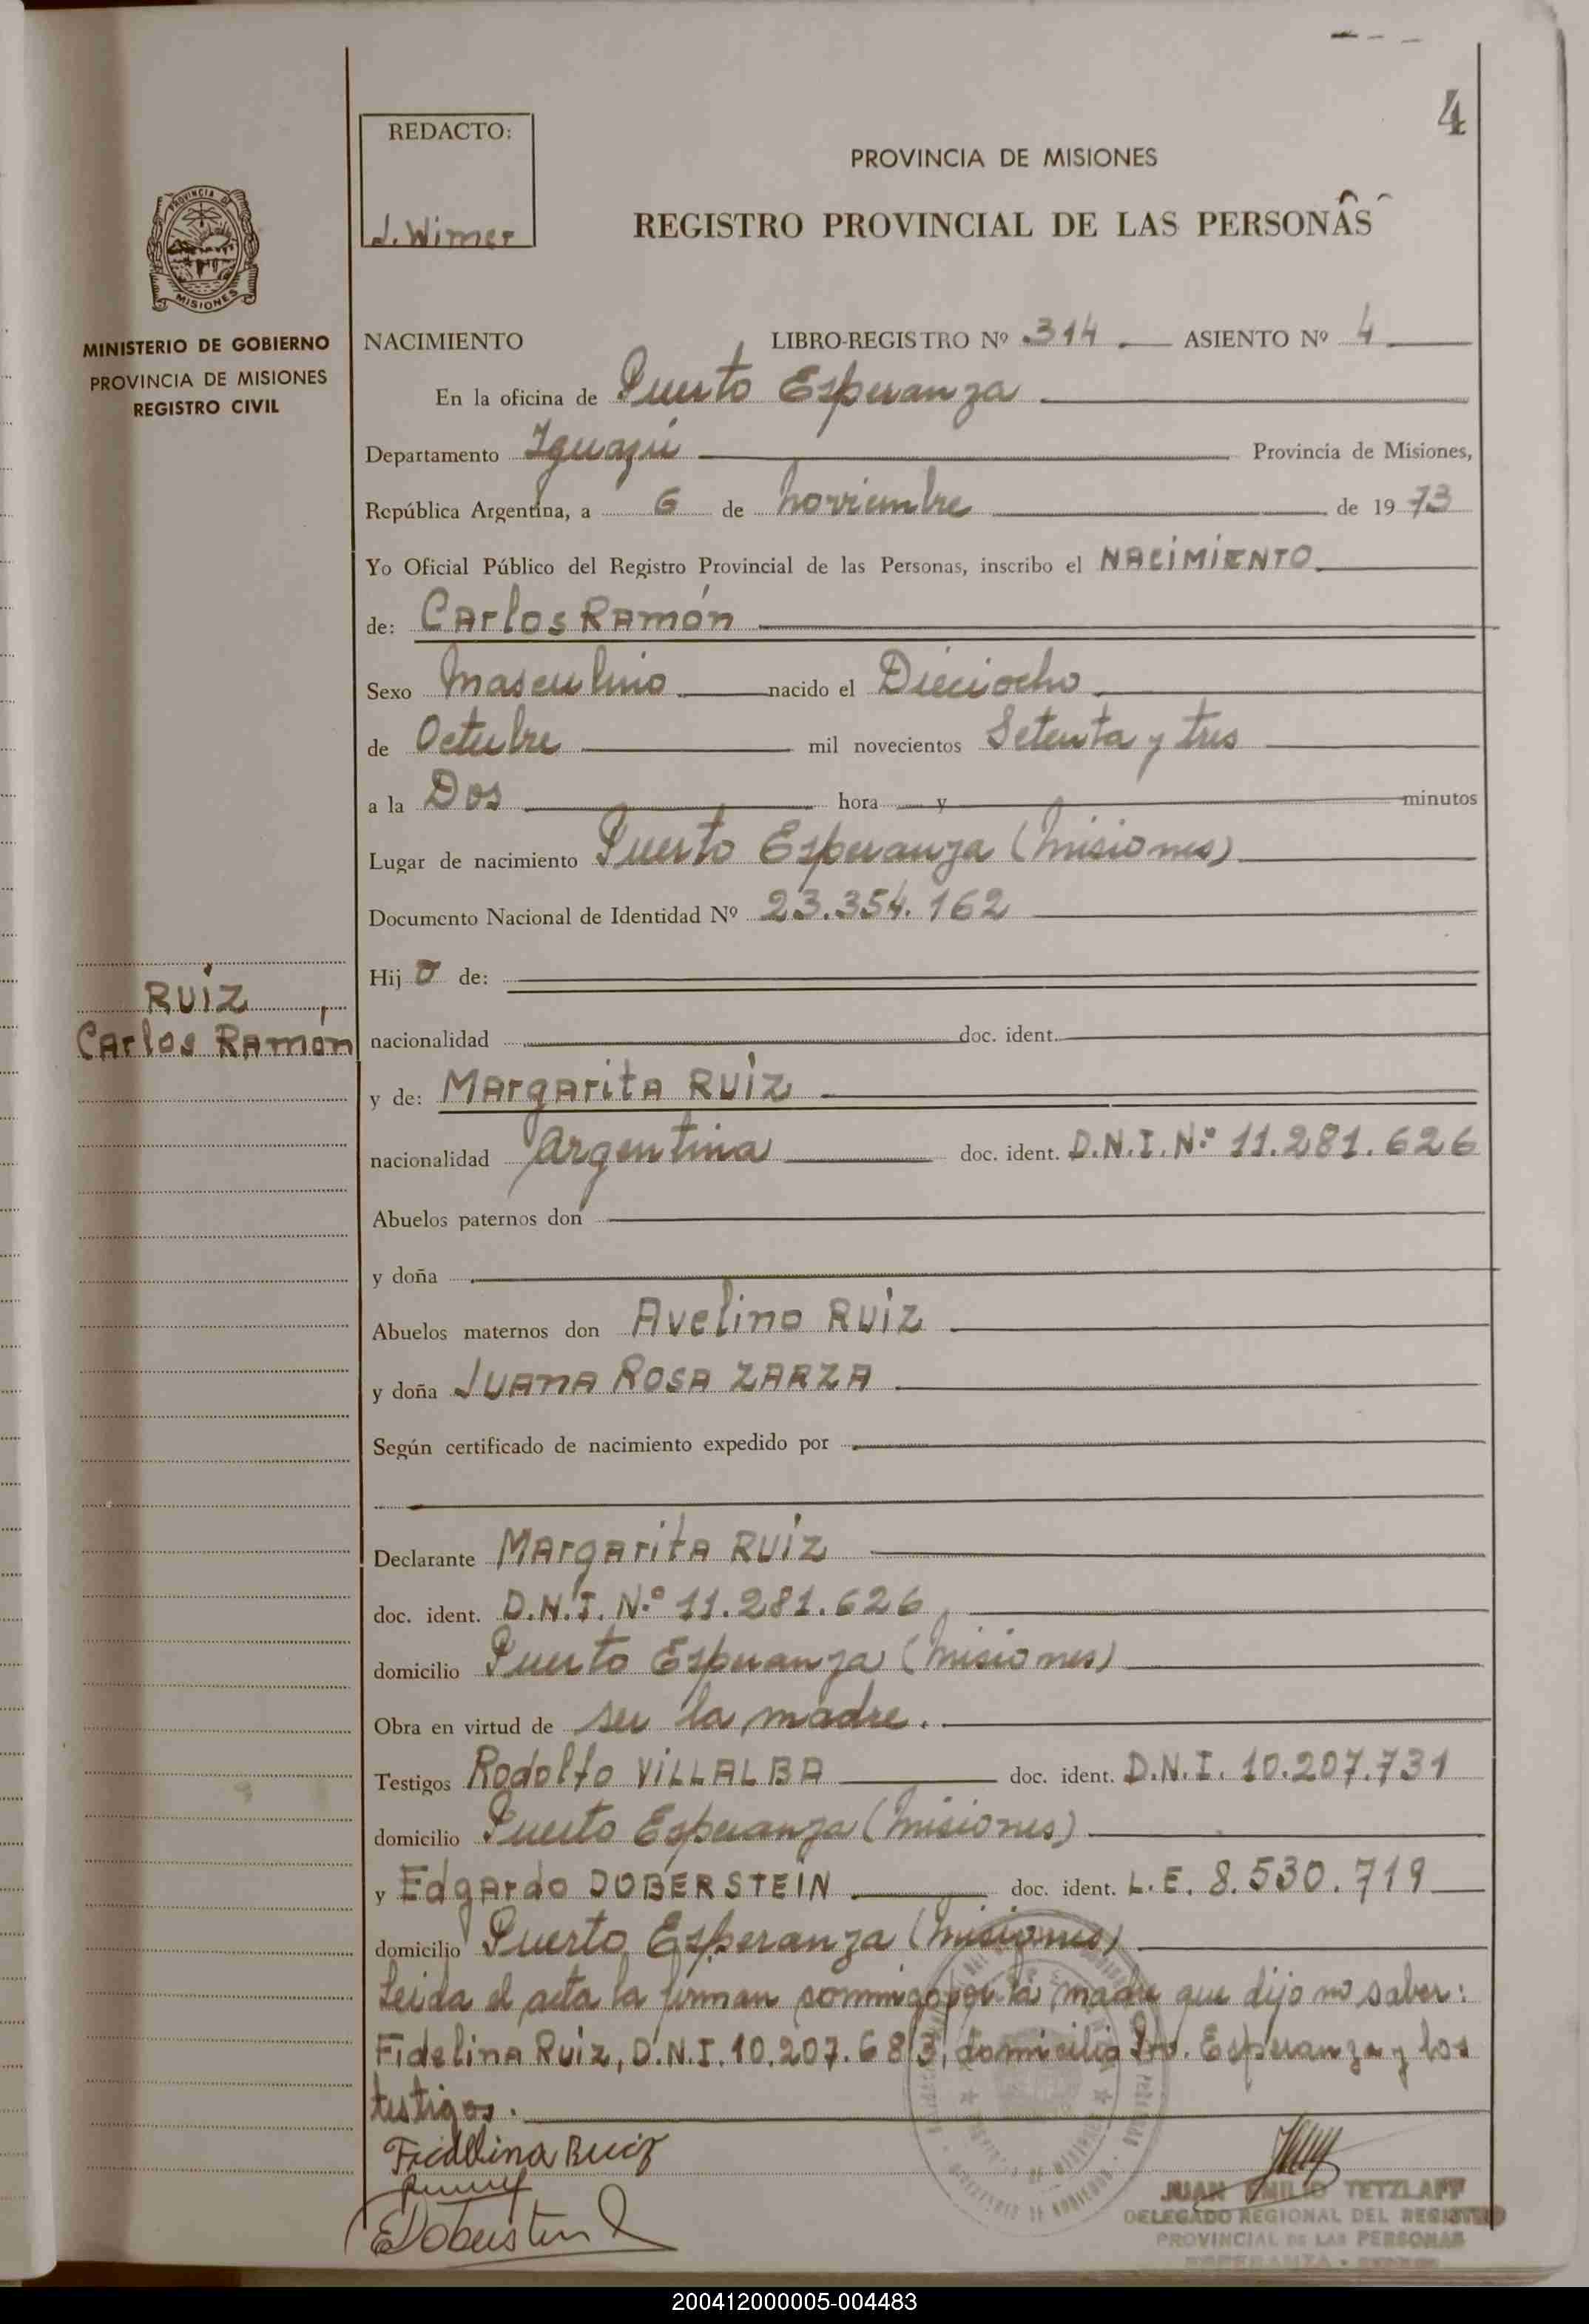 4
REDACTO:
J. Wimer
PROVINCIA DE MISIONES
REGISTRO PROVINCIAL DE LAS PERSONAS
PROVINCIA DE
MISIONES
MINISTERIO DE GOBIERNO
PROVINCIA DE MISIONES
REGISTRO CIVIL
NACIMIENTO LIBRO-REGISTRO Nº 314 ASIENTO Nº 4
En la oficina de Puerto Esperanza
Departamento Iguazú Provincia de Misiones,
República Argentina, a 6 de noviembre de 1973
Yo Oficial Público del Registro Provincial de las Personas, inscribo el NACIMIENTO
de: Carlos Ramón
Sexo Masculino nacido el Dieciocho
de Octubre mil novecientos Setenta y tres
a la Dos hora y minutos
Lugar de nacimiento Puerto Esperanza (Misiones)
Documento Nacional de Identidad Nº 23.354.162
Hijo de:
RUIZ,
Carlos Ramón
nacionalidad doc. ident.
y de: Margarita RUIZ
nacionalidad Argentina doc. ident. D.N.I. N.º 11.281.626
Abuelos paternos don
y doña
Abuelos maternos don Avelino RUIZ
y doña JUANA ROSA ZARZA
Según certificado de nacimiento expedido por
Declarante Margarita RUIZ
doc. ident. D.N.I. N.º 11.281.626
domicilio Puerto Esperanza (Misiones)
Obra en virtud de ser la madre.
Testigos Rodolfo VILLALBA doc. ident. D.N.I. 10.207.731
domicilio Puerto Esperanza (Misiones)
y Edgardo DOBERSTEIN doc. ident. L.E. 8.530.719
domicilio Puerto Esperanza (Misiones)
Leida el acta la firman conmigo por la madre que dijo no saber:
Fidelina Ruiz, D.N.I. 10.207.683, domicilio Pto. Esperanza y los
testigos.
Fidelina Ruiz
EDoberstein
JUAN EMILIO TETZLAFF
DELEGADO REGIONAL DEL REGISTRO
PROVINCIAL DE LAS PERSONAS
200412000005-004483